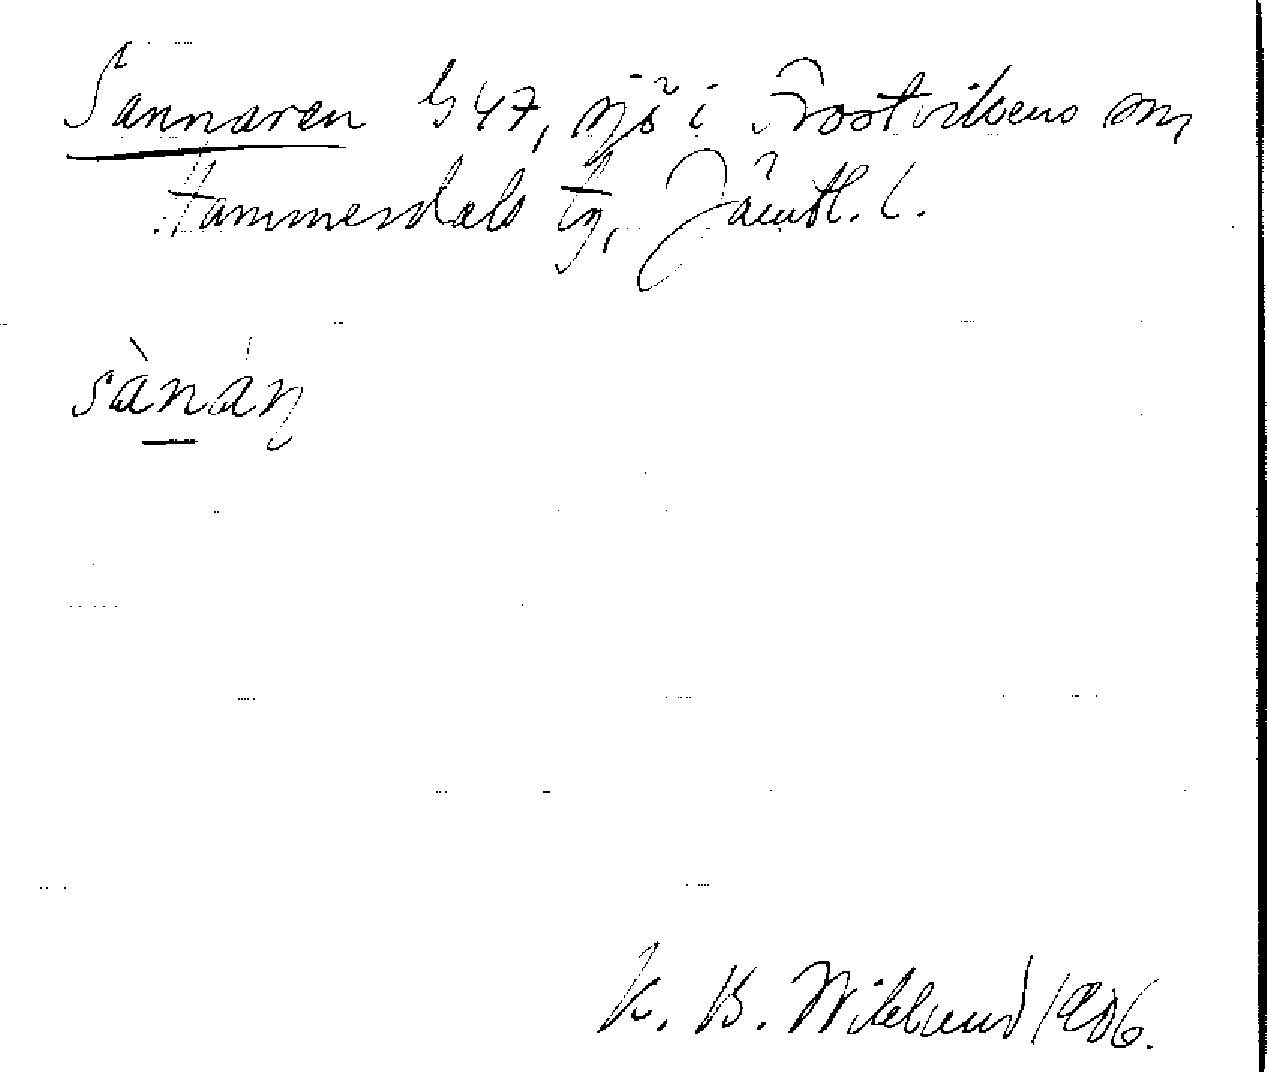 Sannaren G 47, sjö i Frostvikens sn,
Hammerdals tg, Jämtl. l.
sànáŋ
K. B. Wiklund 1906.